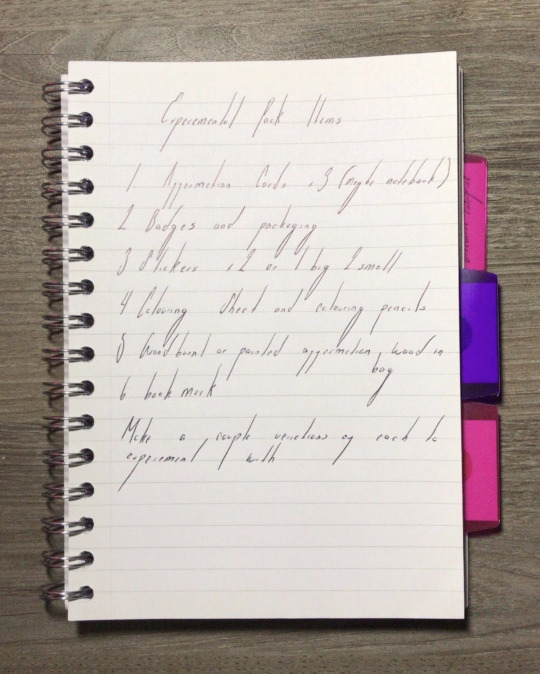 Experemental Pack Items
1 Affermation Cards x3 (maybe notebook)
2 Badges and packaging
3 Stickers x2 or 1 big 2 small
4 Colouring Sheet and colouring pencils
5 Woodburnt or painted affermation, wood in
bag
6 book mark
Make a couple veriations of each to
experement with